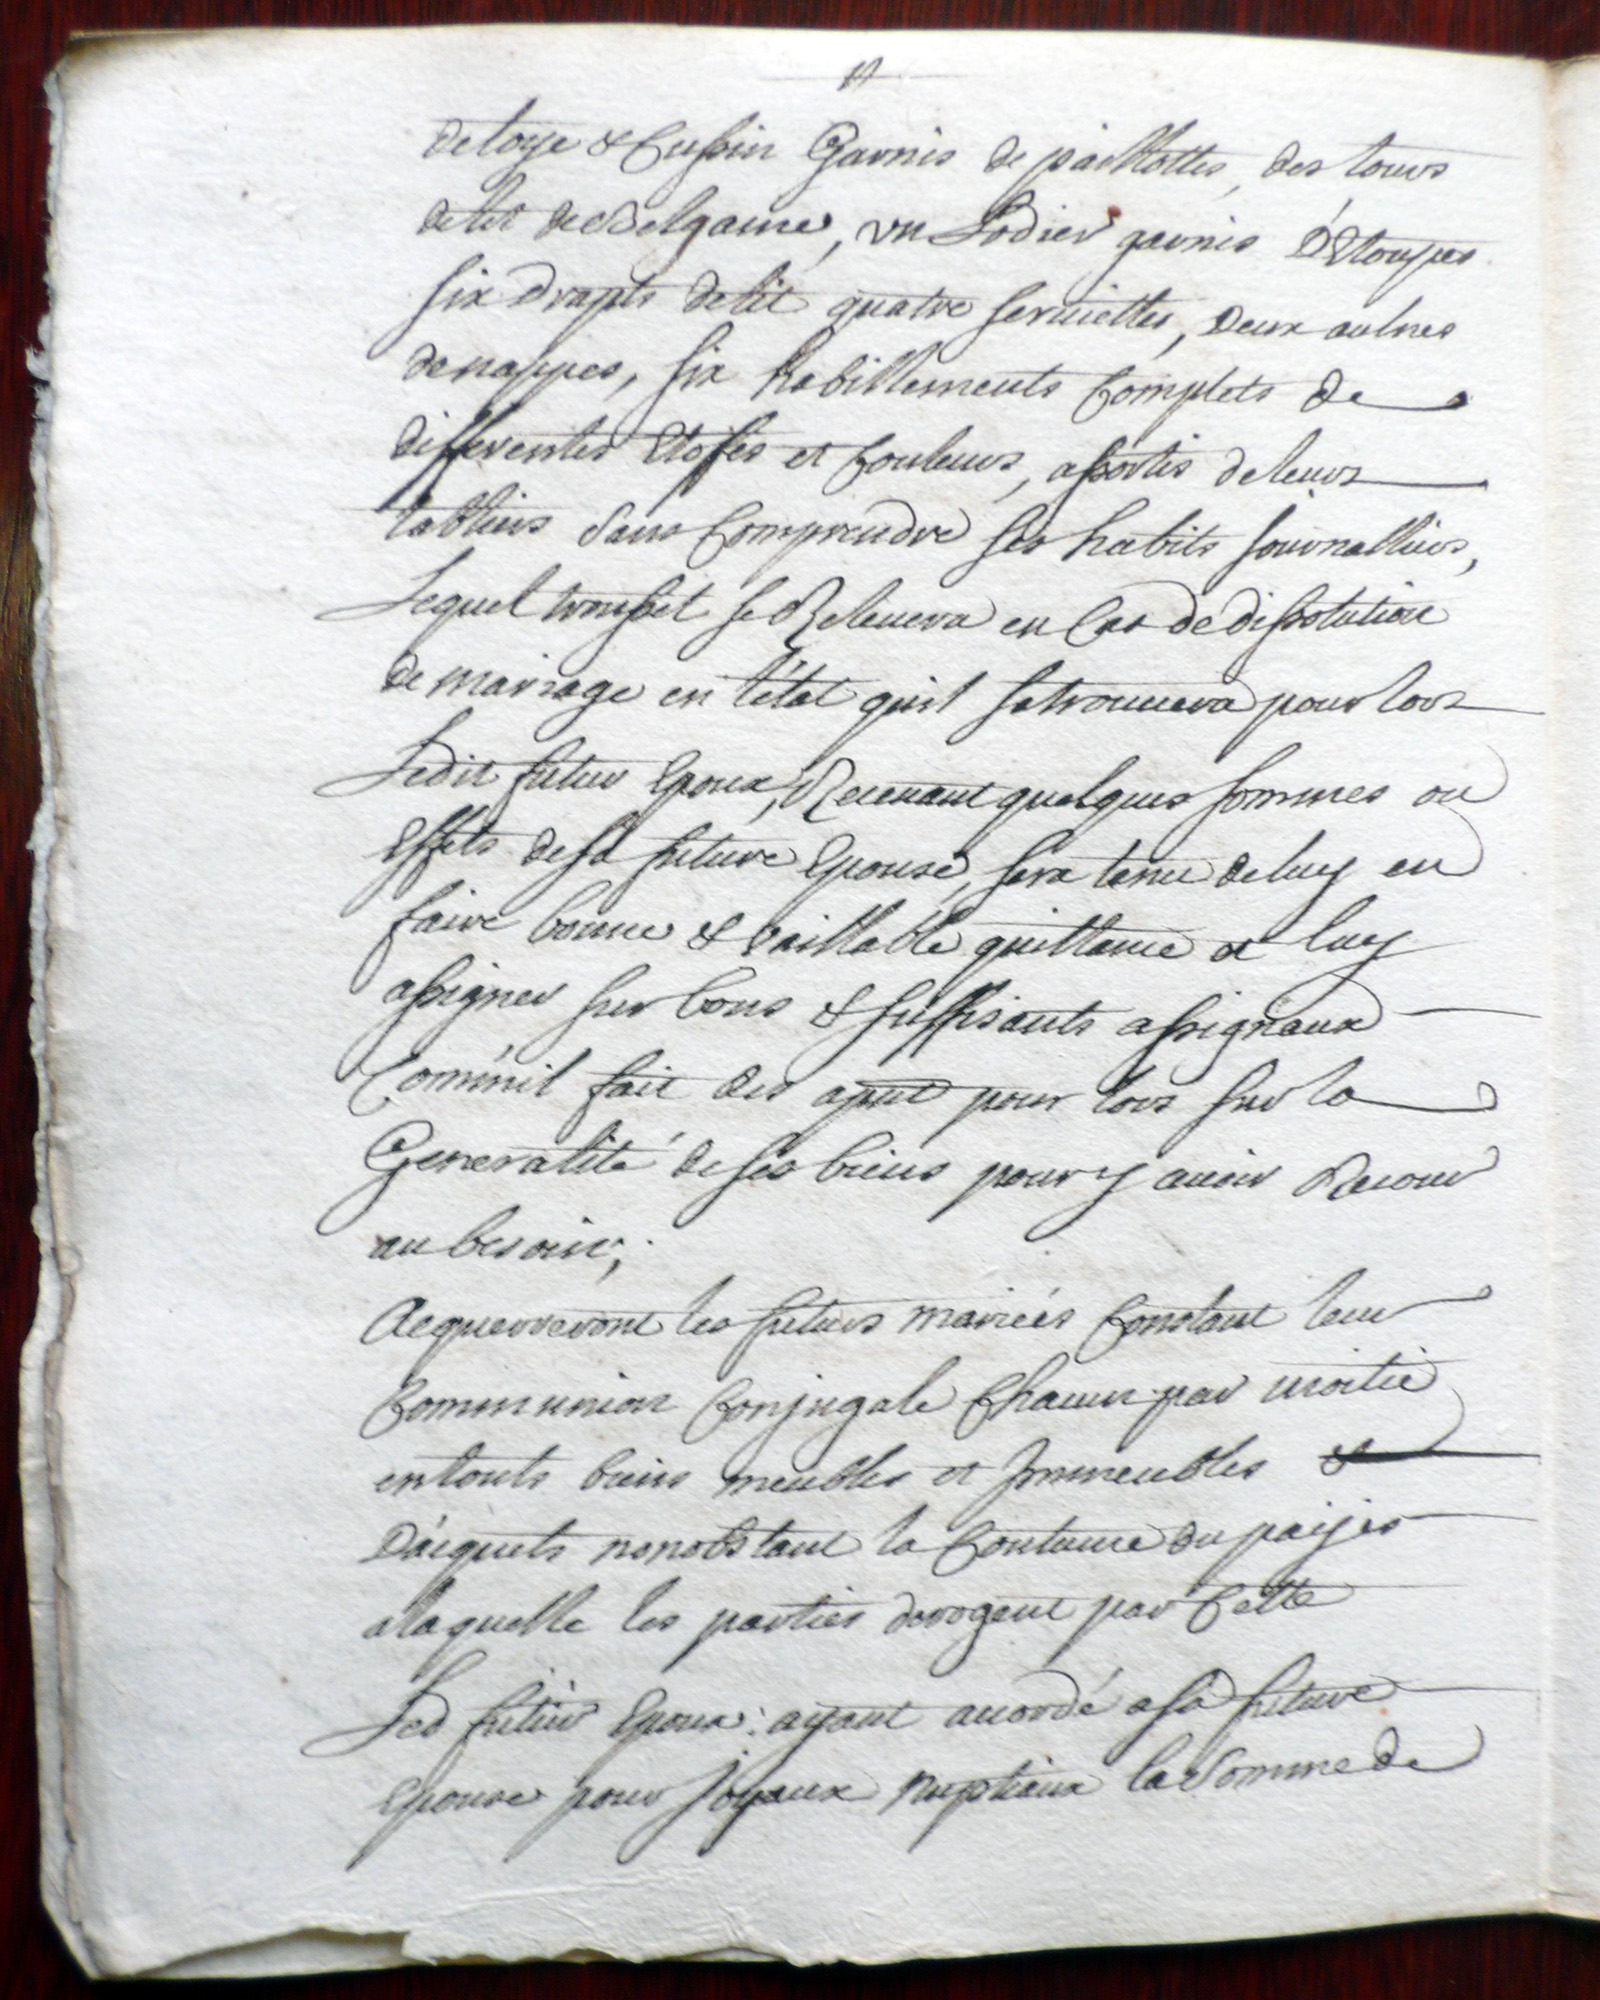 de toye & Cussin Garnis de paillottes, des tours
de lit de Belgame, vn Lodier garnis D'Etoupes
six drapts de lit quatre seruiettes, Deux aulnes
de nappes, six habillements Complets de
differentes Etoffes et Couleurs, assortis de leurs
tabliers sans Comprendre ses habits Journalliers,
Lequel trousset se Releuera en Cas de dissolution
de mariage en l'état quil se trouuera pour lors
Ledit futur Epoux, Receuant quelques sommes ou
Effets de sa future Epouse, sera tenu de luy en
faire bonne & vaillable quittance et luy
assigner sur bons & suffisants assignaux
Comm'il fait des apnt pour lors sur la
Generalité de ses biens pour y auoir Recour
au besoin;
Acquerreront les futurs mariées Constant leur
Communion Conjugale Chacun par moitié
en touts biens meubles et Jmmeubles &
D'acquets nonobstant la Coutume du paijes
a laquelle les parties derogent par Cette
Led futur Epoux: ayant accordé a sa future
Epouse pour Joyaux Nuptiaux la Somme de